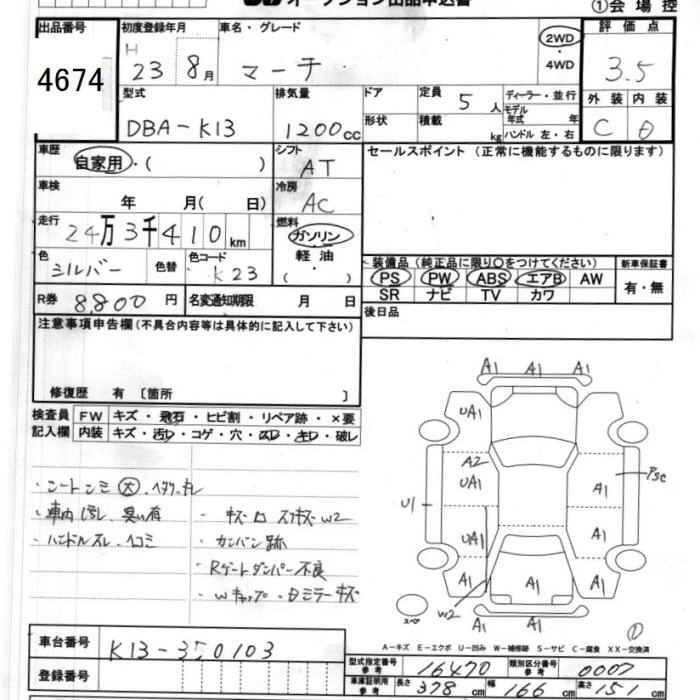 オークション出品申込書
①会場控
出品番号
4674
初度登録年月
H
23 8月
車名・グレード
マーチ
2WD
・
4WD
評価点
3.5
外装 内装
C D
型式
DBA-K13
排気量
1200cc
ドア
形状
定員 5人
積載 kg
ディーラー・並行
モデル年式 年
ハンドル 左・右
車歴
自家用・( )
シフト
AT
セールスポイント (正常に機能するものに限ります)
車検
年 月( 日)
冷房
AC
走行
24万3千410km
燃料
ガソリン
軽油
・
( )
色
シルバー
色替
色コード
K23
装備品(純正品に限り○をつけてください)
PS PW ABS エアB AW
SR ナビ TV カワ
新車保証書
有・無
R券 8,800円
名変通知期限 月 日
後日品
注意事項申告欄(不具合内容等は具体的に記入して下さい)
修復歴 有 〔箇所 〕
検査員
記入欄
FW キズ・飛石・ヒビ割・リペア跡・×要
内装 キズ・汚レ・コゲ・穴・スレ・キレ・破レ
・シートシミ 大 ・ヘタリ・キレ
・車内汚レ、臭い有
・ハンドルスレ、ヘコミ
・キズ ロ スリキズ W2
・カンバン跡
・Rゲートダンパー不良
・Wキャップ・日ミラーキズ
A1 A1 A1
UA1
A2
UA1
UA1
U1
A1
W2
A1
Psc
A1
A1
A1
A1
A1 A1
スペア
①
A-キズ E-エクボ U-凹み W-補修跡 S-サビ C-腐食 XX-交換済
車台番号 K13-350103
登録番号
型式指定番号 参考 16470
類別区分番号 参考 0007
車庫証明用 参考
長さ 378cm 幅 166cm 高さ 151cm